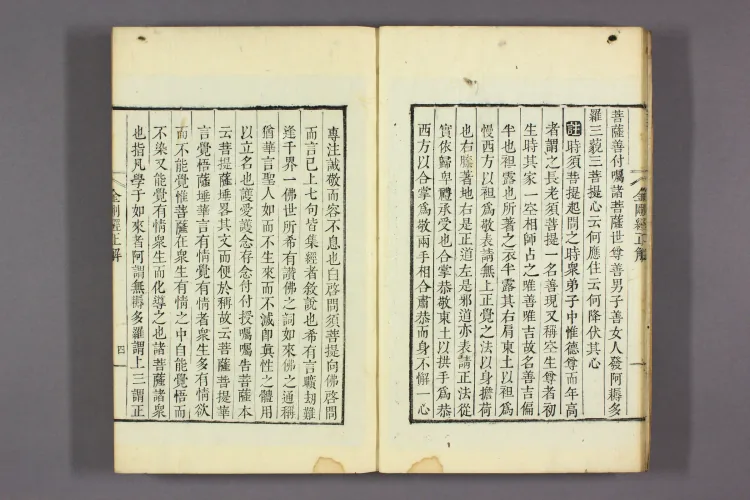 菩薩善付囑諸菩薩世尊善男子善女人發阿耨多
羅三藐三菩提心云何應住云何降伏其心
註時須菩提起問之時衆弟子中惟德尊而年高
者謂之長老須菩提一名善現又稱空生尊者初
生時其家一空相師占之唯善唯吉故名善吉偏
半也袒露也所著之衣半露其右肩東土以袒爲
慢西方以袒爲敬表請無上正覺之法以身擔荷
也右膝著地右是正道左是邪道亦表請正法從
實依歸卑禮承受也合掌恭敬東土以拱手爲恭
西方以合掌爲敬兩手相合肅恭而身不懈一心
金剛經正解
專注誠敬而容不息也白啓問須菩提向佛啓問
而言已上七句皆集經者敘說也希有言曠劫難
逢千界一佛世所希有讚佛之詞如來佛之通稱
猶華言聖人如而不生來而不滅卽眞性之體用
以立名也護愛護念存念付付授囑囑告菩薩本
云菩提薩埵畧其文而便於稱故云菩薩菩提華
言覺悟薩埵華言有情覺有情者衆生多有情欲
而不能覺惟菩薩在衆生有情之中自能覺悟而
不染又能覺有情衆生而化導之也諸菩薩諸衆
也指凡學于如來者阿謂無耨多羅謂上三謂正
金剛經正解
四